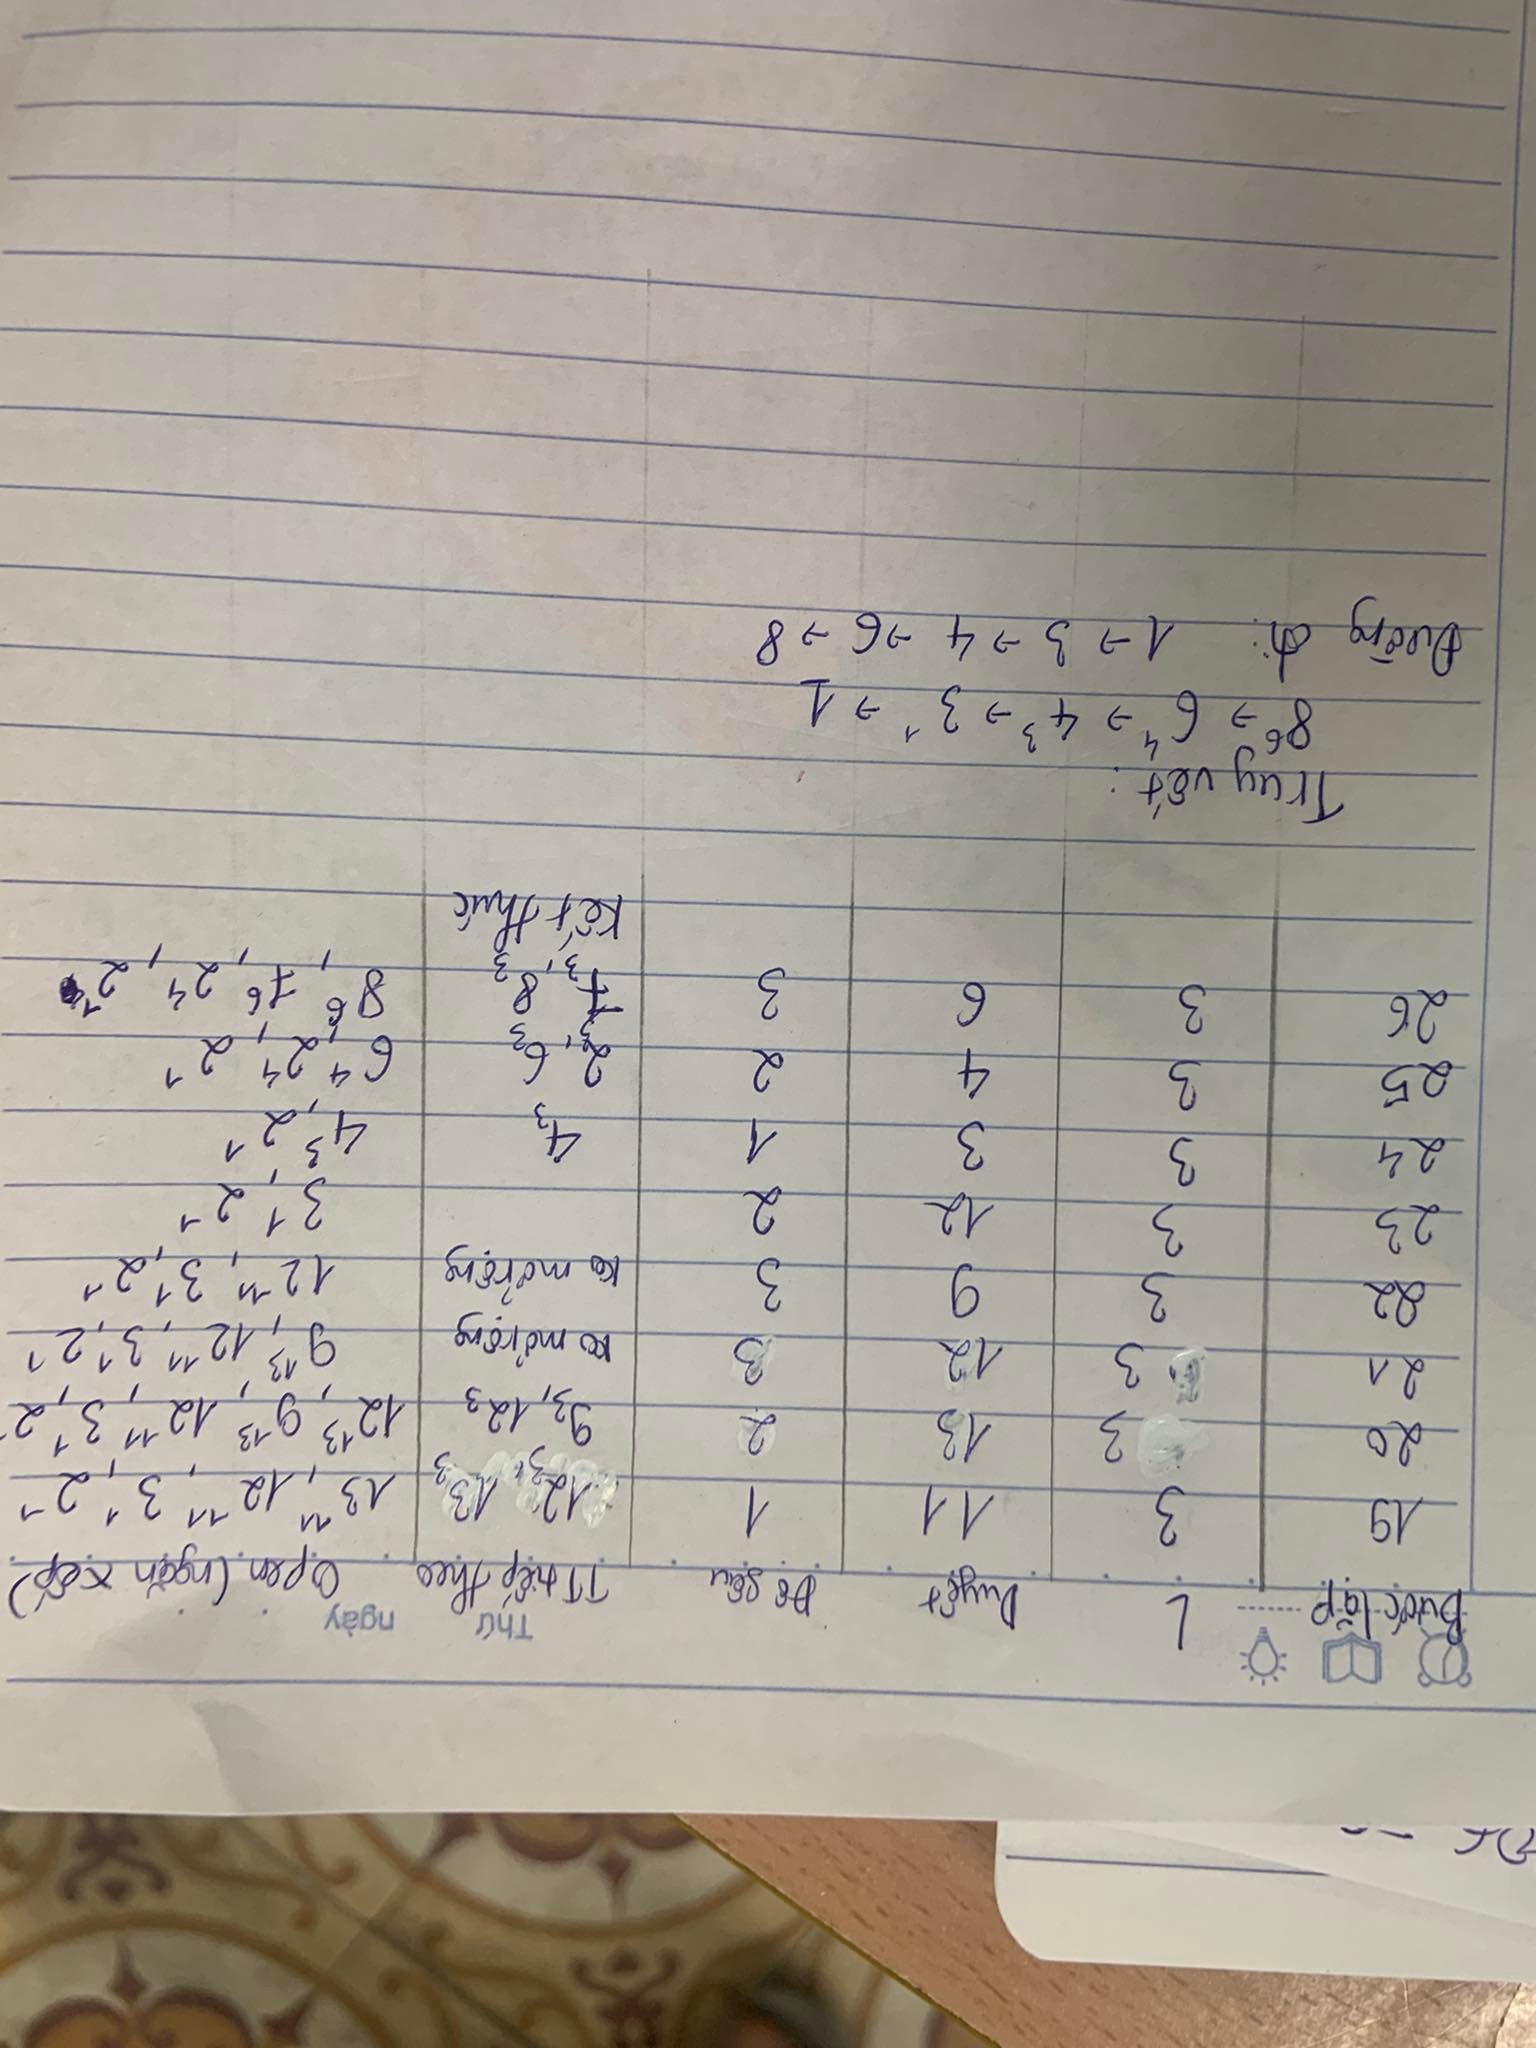 Thứ ngày
Bước lặp L Duyệt Độ sâu TT tiếp theo Open (ngăn xếp)
19 3 11 1 12₃, 13₃ 13¹¹, 12¹¹, 3¹, 2¹
20 3 13 2 9₃, 12₃ 12¹³, 9¹³, 12¹¹, 3¹, 2¹
21 3 12 3 ko mở rộng 9¹³, 12¹¹, 3¹, 2¹
22 3 9 3 ko mở rộng 12¹¹, 3¹, 2¹
23 3 12 2 3¹, 2¹
24 3 3 1 4₃ 4³, 2¹
25 3 4 2 2₃, 6₃ 6⁴, 2⁴, 2¹
26 3 6 3 7₃, 8₃ 8⁶, 7⁶, 2⁴, 2¹
Kết thúc
Truy vết:
8⁶ → 6⁴ → 4³ → 3¹ → 1
Đường đi: 1 → 3 → 4 → 6 → 8